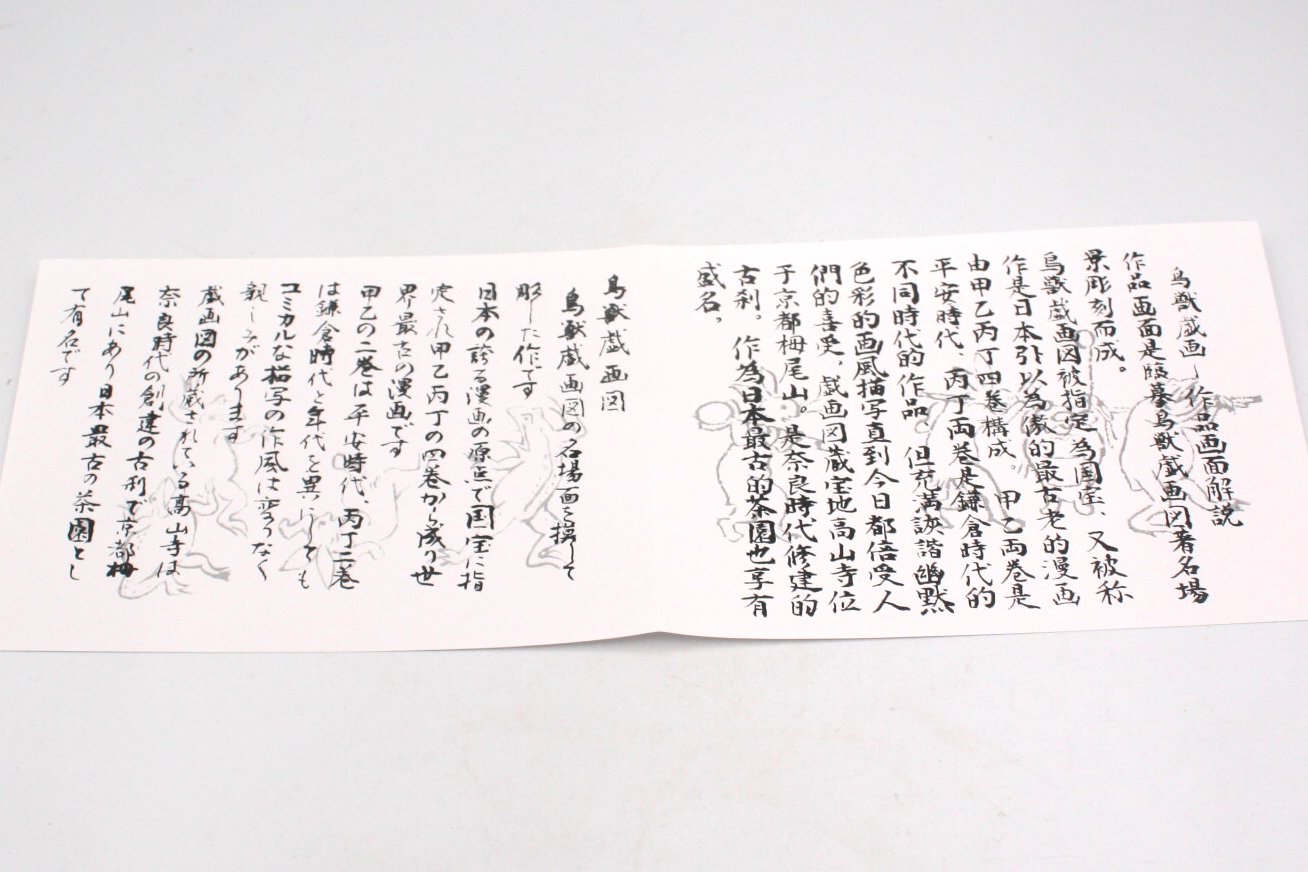 鳥獣戯画 作品画面解説
作品画面是臨摹鳥獣戯画図著名場
景彫刻而成。
鳥獣戯画図被指定為国宝、又被称
作是日本引以為傲的最古老的漫画
由甲乙丙丁四巻構成 甲乙両巻是
平安時代、丙丁両巻是鎌倉時代的
不同時代的作品、但充満詼諧幽黙
色彩的画風描写直到今日都倍受人
們的喜愛。戯画図蔵宝地高山寺位
于京都栂尾山。是奈良時代修建的
古刹。作為日本最古的茶園也享有
盛名。
鳥獣戯画図
鳥獣戯画図の名場面を模して
彫した作です
日本の誇る漫画の原点で国宝に指
定され甲乙丙丁の四巻から成り世
界最古の漫画です
甲乙の二巻は平安時代、丙丁二巻
は鎌倉時代と年代を異にしても
コミカルな描写の作風は変りなく
親しみがあります
戯画図の所蔵されている高山寺は
奈良時代の創建の古刹で京都栂
尾山にあり日本最古の茶園とし
て有名です